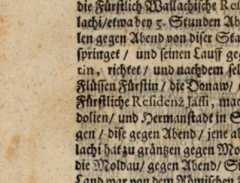 die Fürstlich Wallachische Res
lachi/etwa bey 5. Stunden Ab
len gegen Abend von diser Sta
springet / und seinen Lauff geg
ein, richtet/ und nachdem sel
Flüssen Fürstin/ die Donaw/
Fürstliche Residenz Jassi, mac
dolien/ und Hermanstadt in S
gen / dise gegen Abend/ jene ab
lachi hat zu gräntzen gegen Mo
die Moldau/ gegen Abend/ S
Land war von dem Römischen